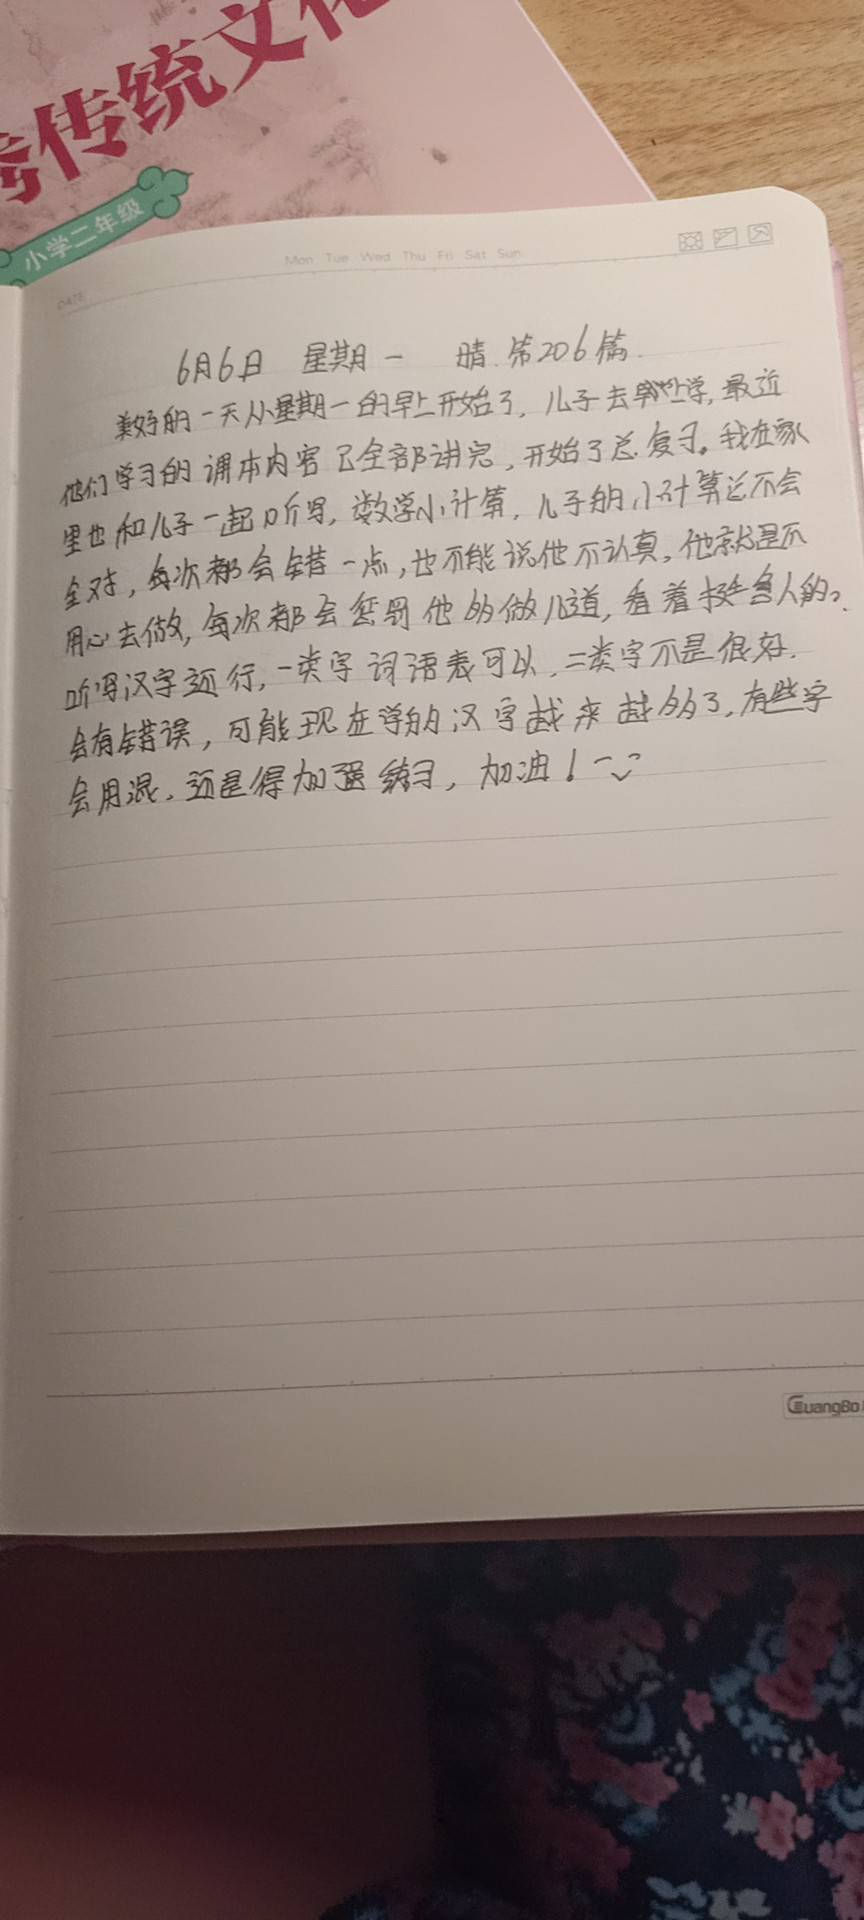 传统文化
小学二年级
Mon Tue Wed Thu Fri Sat Sun
DATE
6月6日 星期一 晴.第206篇.
美好的一天从星期一的早上开始了,儿子去上学,最近
他们学习的课本内容已全部讲完,开始了总复习。我在家
里也和儿子一起听写,数学小计算,儿子的小计算总不会
全对,每次都会错一点,也不能说他不认真,他就是不
用心去做,每次都会惩罚他多做几道,看着挺气人的。
听写汉字还行,一类字词语表可以,二类字不是很好.
会有错误,可能现在学的汉字越来越多了,有些字
会用混.还是得加强练习,加油!
GuangBo